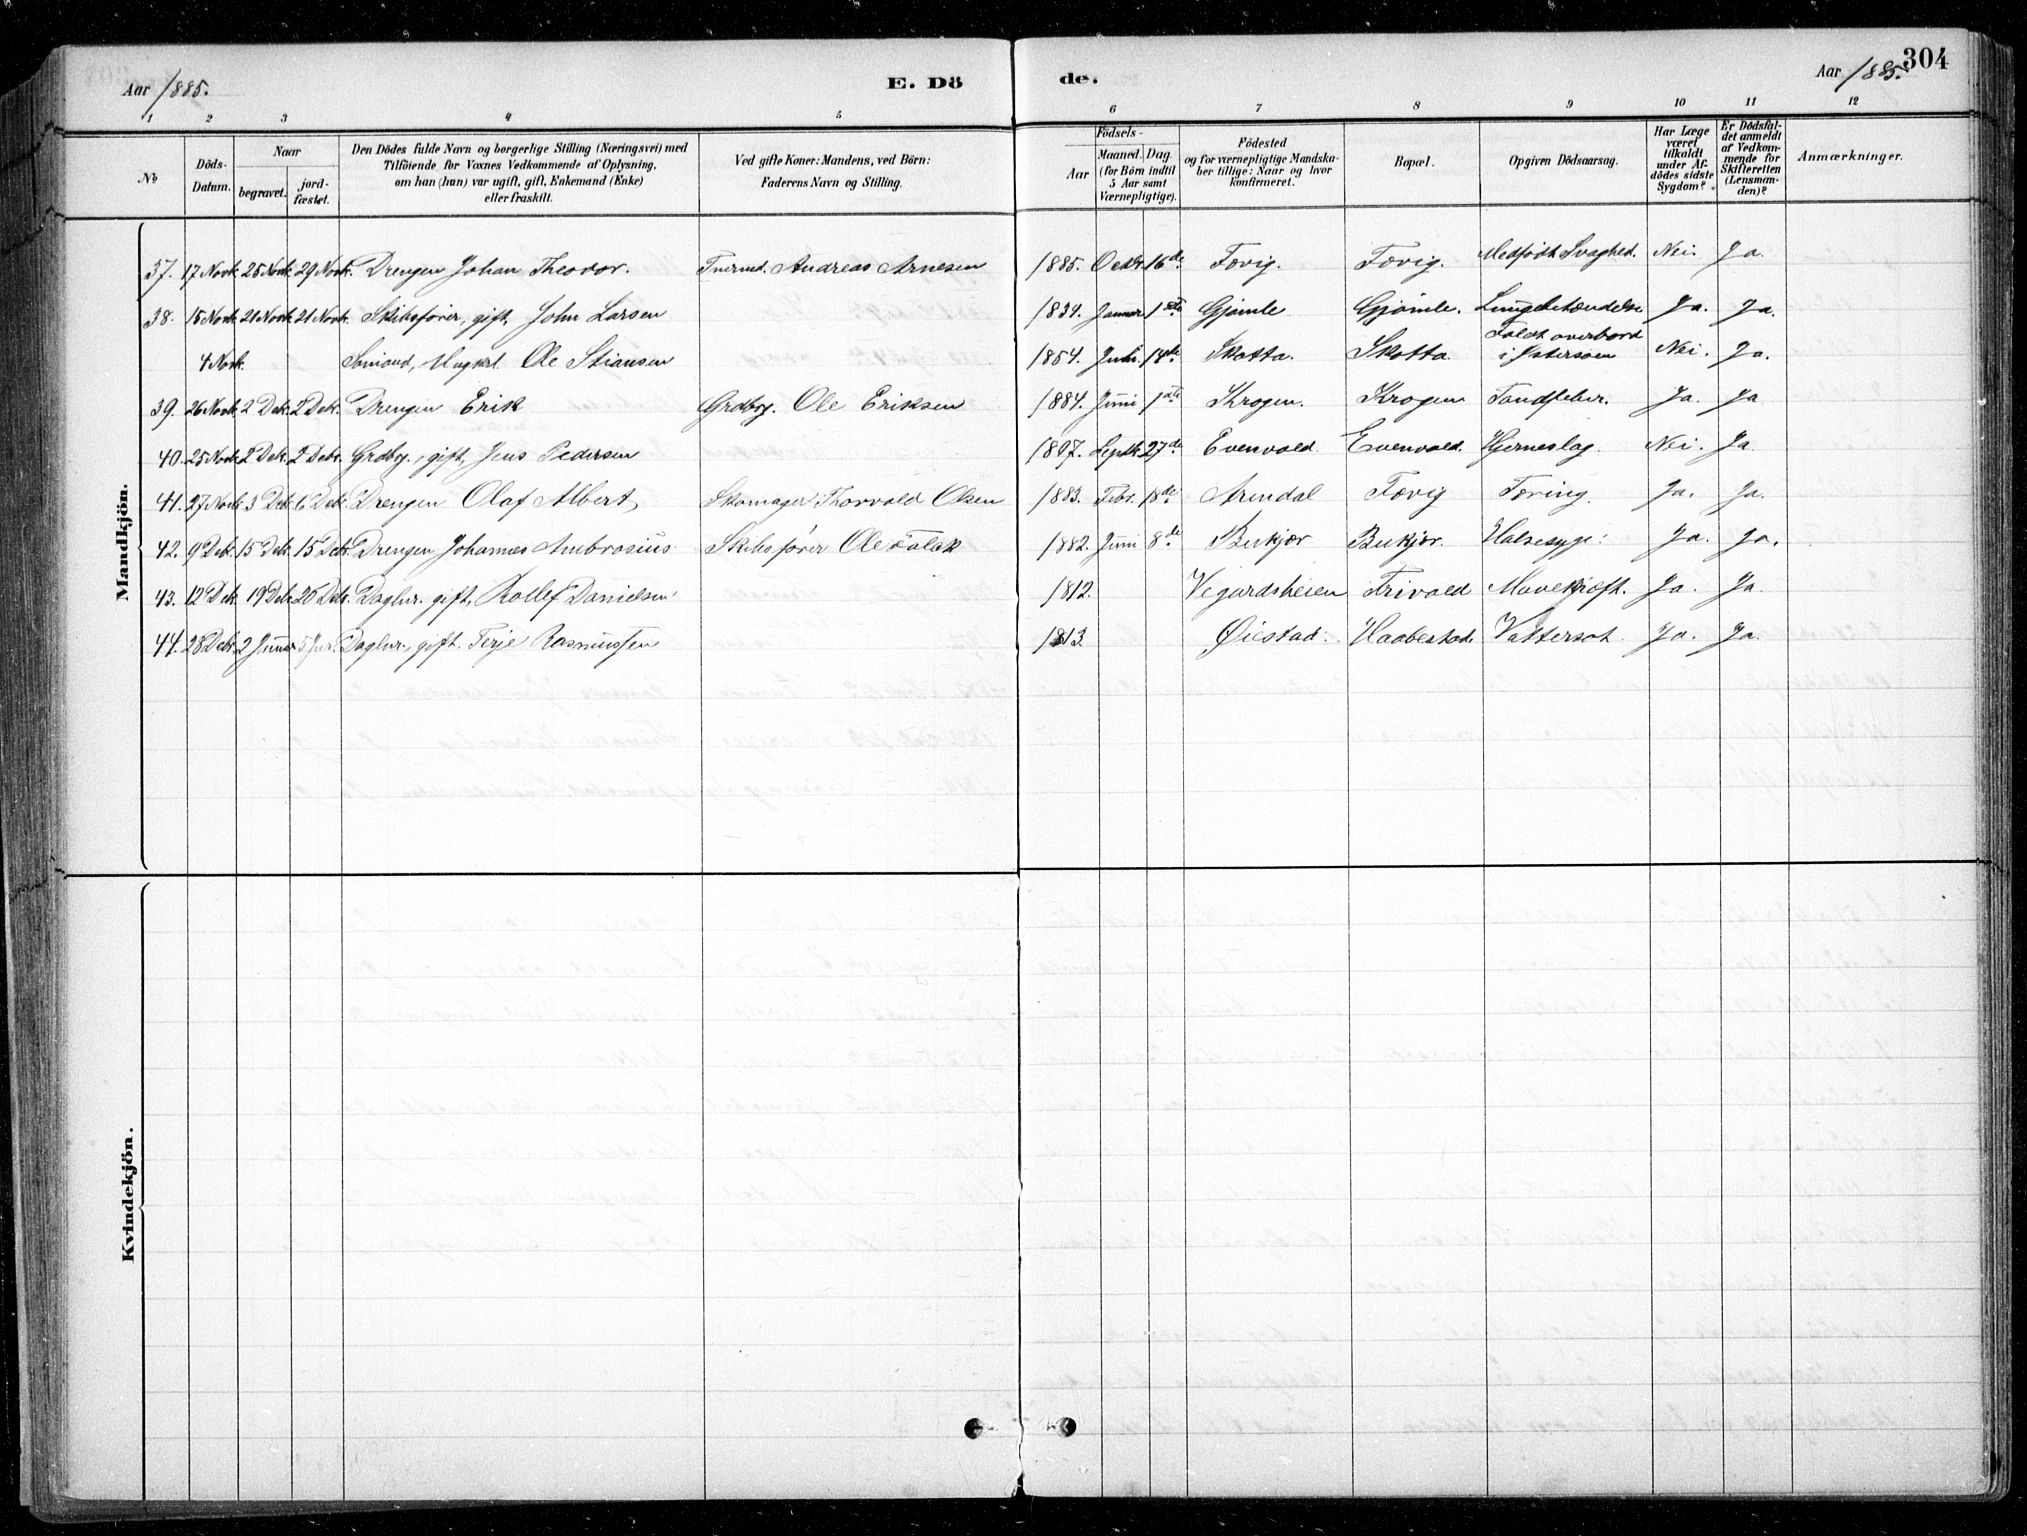 Aar 1885. E. Dö de. Aar 1885. 304
1 2 3 4 5 6 7 8 9 10 11 12
No Döds-Datum. Naar begravet. jord-fæstet. Den Dödes fulde Navn og borgerlige Stilling (Næringsvei) med Tilföiende for Voxnes Vedkommende af Oplysning, om han (hun) var ugift, gift, Enkemand (Enke) eller fraskilt. Ved gifte Koner: Mandens, ved Börn: Faderens Navn og Stilling. Födsels- Aar Maaned. Dag. (for Börn indtil 5 Aar samt Værnepligtige). Födested og for værnepligtige Mandska-ber tillige: Naar og hvor konfirmeret. Bopæl. Opgiven Dödsaarsag. Har Læge været tilkaldt under Af-dödes sidste Sygdom? Er Dödsfal-det anmeldt af Vedkom-mende for Skifteretten (Lensman-den)? Anmærkninger.
Mandkjön.
37. 17 Novb. 25 Novb. 29 Novb. Drengen Johan Theodor. Andreas Arnesen 1885. Octbr. 16de Fævig. Fævig. Medfødt Svaghed. Nei. Ja.
38. 15 Novb. 21 Novb. 21 Novb. Skibsfører, gift, John Larsen 1839. Januar 1ste Gjømle Gjømle. Lungebetændelse Ja. Ja.
4 Novb. Sømand, Ungkrl. Ole Stiansen 1854. 14de Skotta. Skotta. Faldt overbord i Østersøen Nei. Ja.
39. 26 Novb. 2 Dek. 2 Dek. Drengen Erik Grdbrg. Ole Eriksen 1884. Juni 1ste Krogen. Krogen Tandfeber. Ja. Ja
40. 25 Novb. 2 Dek. 2 Debr. Grdbrg. gift, Jens Pedersen 1807. Septb. 27de Evenvold. Evenvold. Hjerneslag. Nei. Ja
41. 27 Novb. 3 Dek. 6 Dek. Drengen Olaf Albert, Skomager Thorvald Olsen 1883. Febr. 18de Arendal Fævig Tæring. Ja. Ja.
42. 9 Dek. 15 Dek. 15 Dek. Drengen Johannes Ambrosius. Skibsfører Ole Falck 1882. Juni 8de Birkjær Birkjær. Halsesyge. Ja. Ja.
43. 12 Dek. 19 Dek. 20 Dek. Daglnr. gift, Rollef Danielsen 1812. Vegardsheien Trivold Mavekræft. Ja. Ja.
44. 28 Dek. 2 Januar Daglnr. gift. Terje Rasmussen 1813. Øiestad. Haabestad. Vattersot. Ja. Ja.
Kvindekjön.